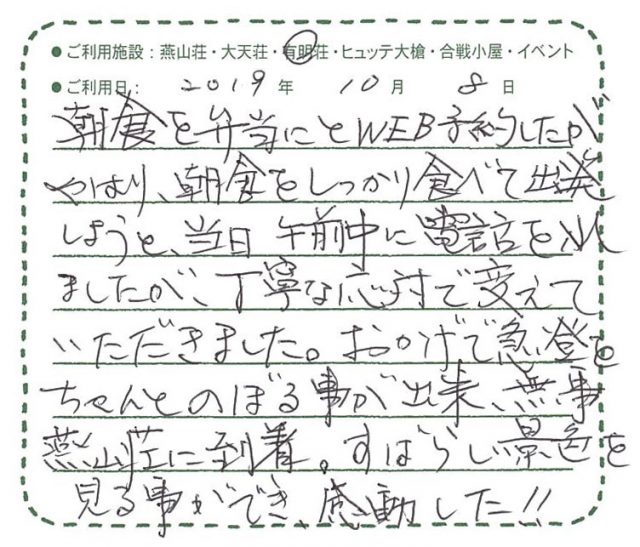 ●ご利用施設：燕山荘・大天荘・有明荘・ヒュッテ大槍・合戦小屋・イベント
●ご利用日： 2019 年 10 月 8 日
朝食を弁当にとWEB予約したが
やはり、朝食をしっかり食べて出発
しようと、当日 午前中に電話を入れ
ましたが、丁寧な応対で変えて
いただきました。おかげで急登を
ちゃんとのぼる事が出来、無事
燕山荘に到着。すばらしい景色を
見る事ができ、感動した!!